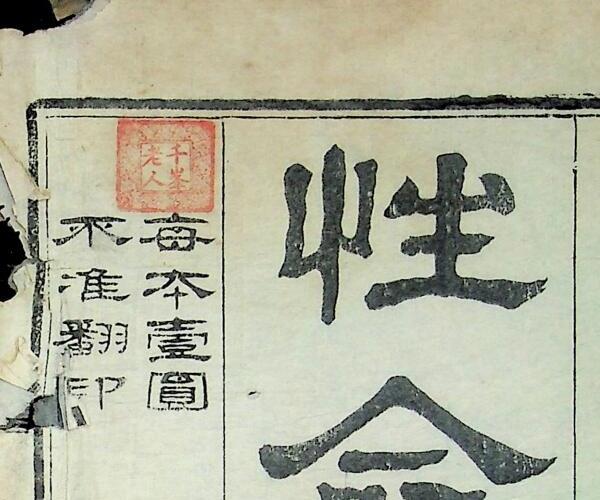 性命
千峯
老人
每本壹圓
不准翻印